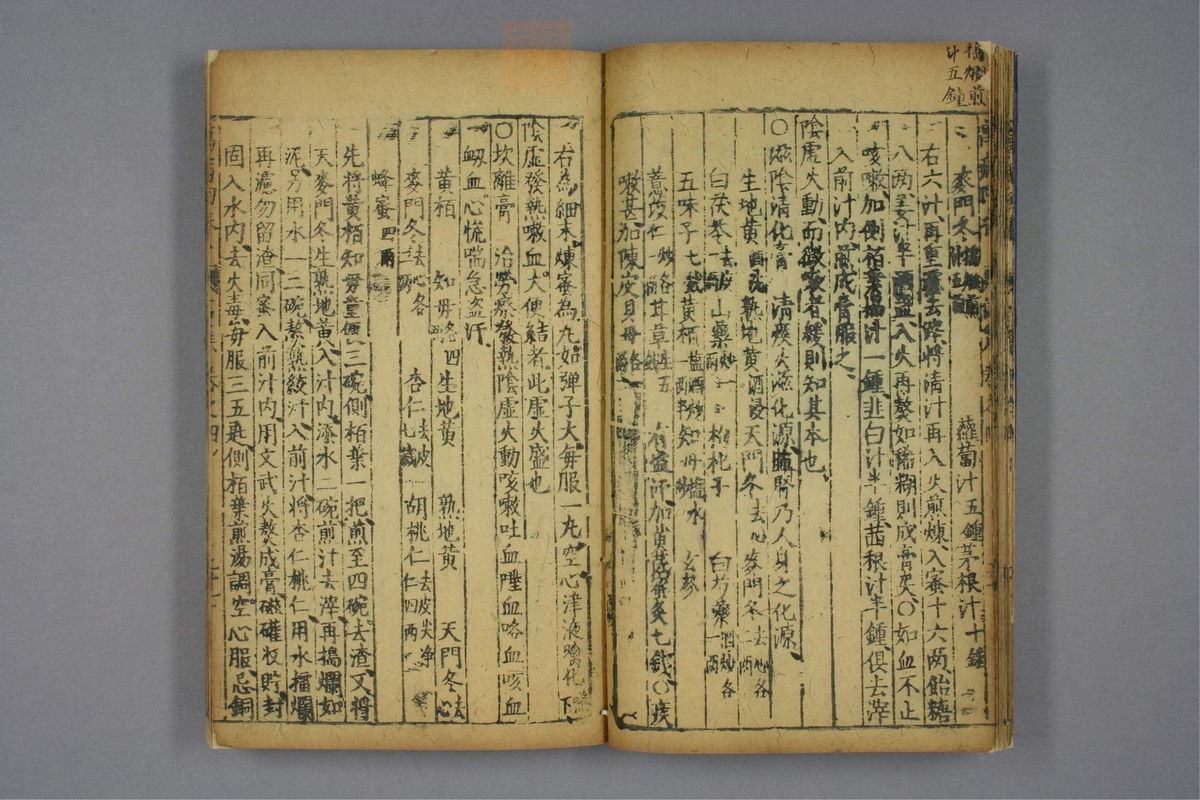 汁五鐘
麥門冬 蘿蔔汁五鐘茅根汁十鐘
右六汁再重去滓將清汁再入火煎煉入蜜十六兩飴糖
八兩姜汁半盃入火再熬如稀糊則成膏矣〇如血不止
咳嗽加側栢葉搗汁一鍾韭白汁半鍾茜根汁半鍾俱去滓
入前汁內煎成膏服之
陰虛火動而微嗽者緩則知其本也
〇滋陰清化膏 清痰火滋化源肺腎乃人身之化源
生地黃 熟地黃酒浸天門冬去心麥門冬去心各二兩
白茯苓去皮一兩山藥炒一兩枸杞子 白芍藥酒炒各一兩
五味子七錢黃栢鹽酒炒一兩半知母鹽水 玄參
薏苡仁炒各一兩甘草生五錢 右盜汗加黃芪蜜炙七錢〇痰
嗽甚加陳皮貝母各一兩
右為細末煉蜜為丸如彈子大每服一丸空心津液噙化下
陰虛發熱嗽血大便結者此虛火盛也
〇坎離膏 治勞瘵發熱陰虛火動咳嗽吐血唾血咯血咳血
衂血心慌喘急盜汗
黃栢 知母各四 生地黃 熟地黃 天門冬去心
麥門冬去心各二兩 杏仁去皮七錢 胡桃仁去皮尖净仁四兩
蜂蜜四兩
先將黃栢知母童便三碗側栢葉一把煎至四碗去渣又將
天麥門冬生熟地黃入汁內添水二碗煎汁去滓再搗爛如
泥另用水一二碗熬熟絞汁入前汁將杏仁桃仁用水擂爛
再濾勿留渣同蜜入前汁內用文武火熬成膏磁礶收貯封
固入水內去火毒每服三五匙側栢葉煎湯調空心服忌銅